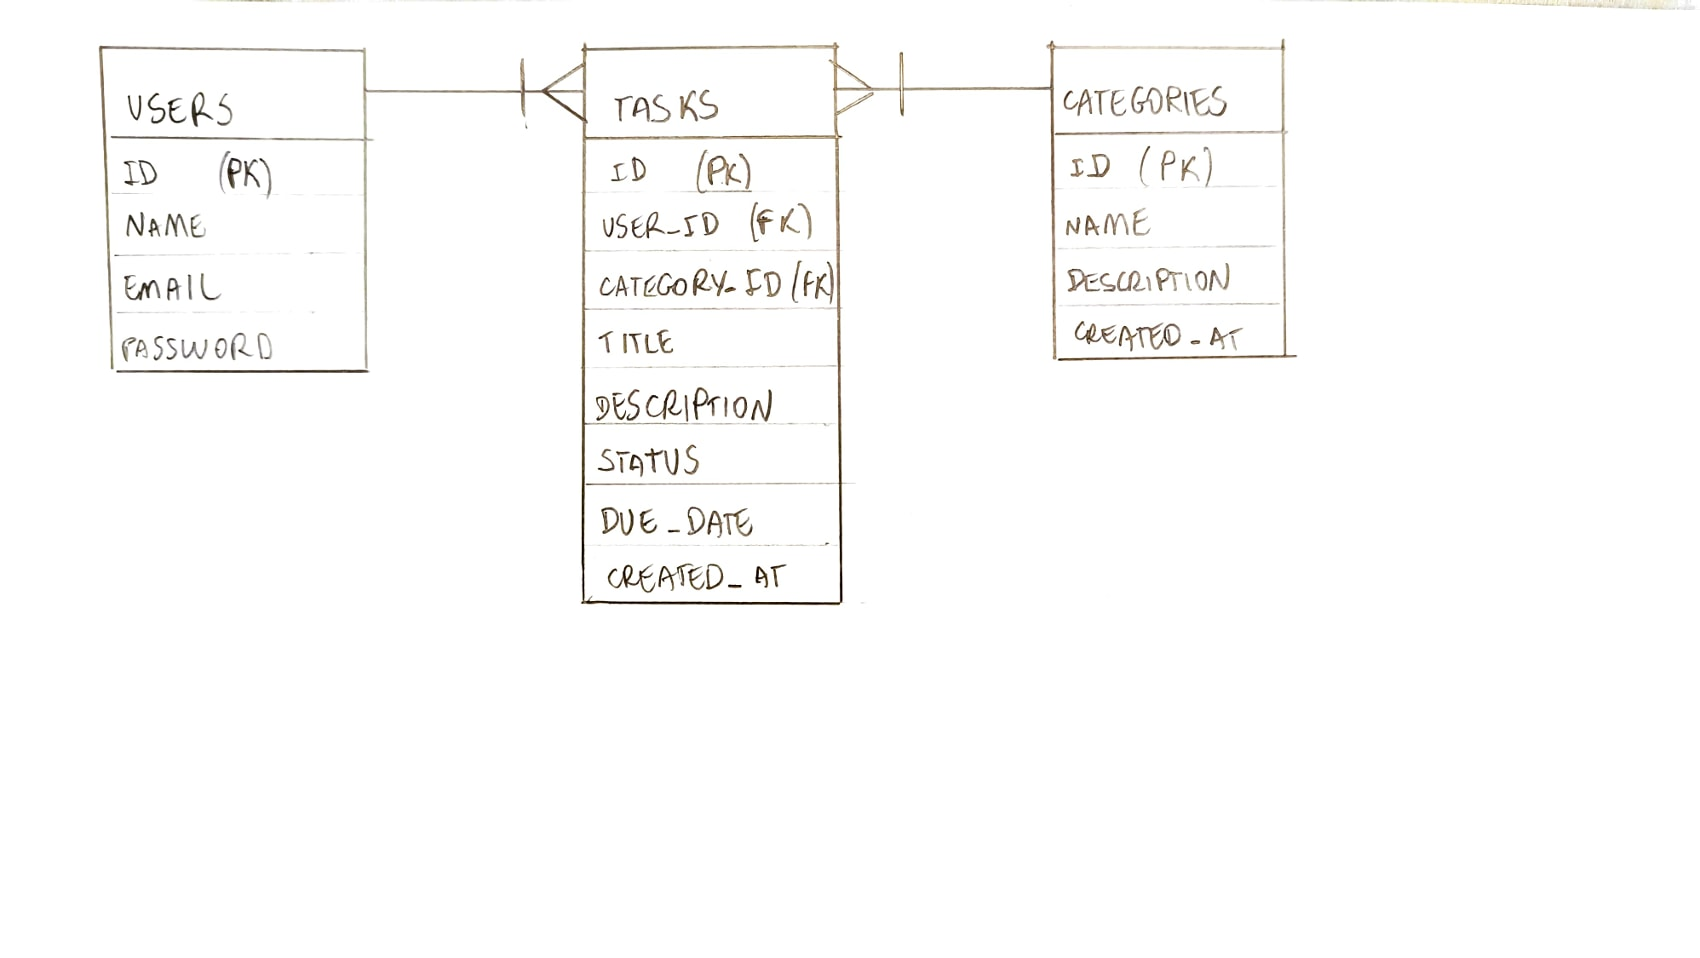 USERS
ID (PK)
NAME
EMAIL
PASSWORD
TASKS
ID (PK)
USER_ID (FK)
CATEGORY_ID (FK)
TITLE
DESCRIPTION
STATUS
DUE_DATE
CREATED_AT
CATEGORIES
ID (PK)
NAME
DESCRIPTION
CREATED_AT